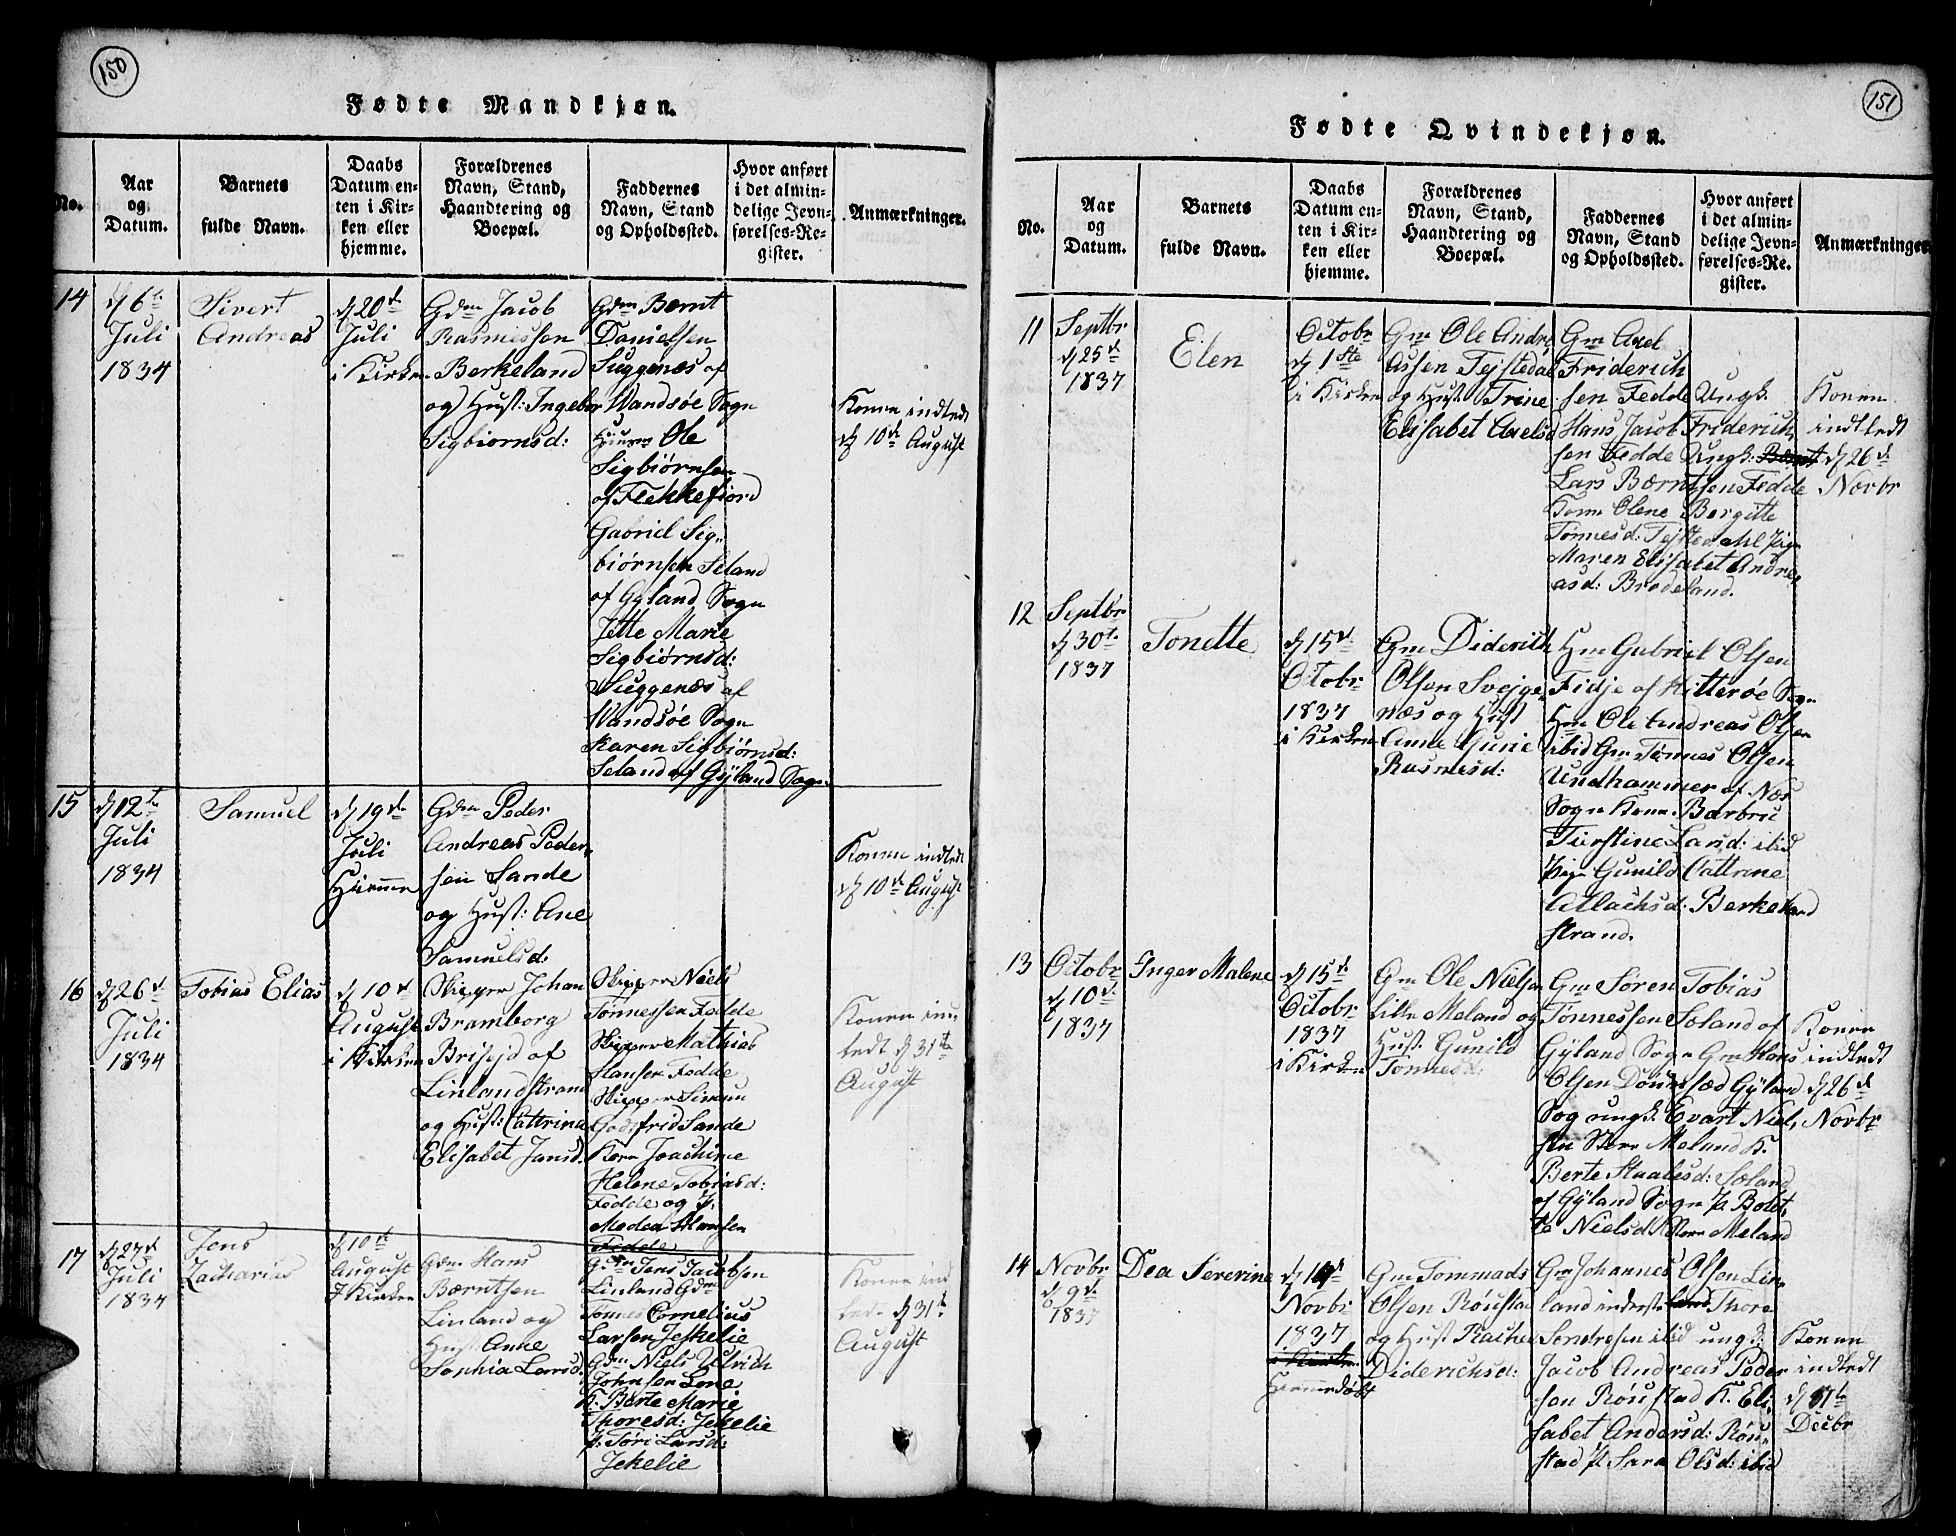 150
Fødte Mandkjøn.
No.
Aar
og
Datum.
Barnets
fulde Navn.
Daabs
Datum en-
ten i Kir-
ken eller
hjemme.
Forældrenes
Navn, Stand,
Haandtering og
Boepæl.
Faddernes
Navn, Stand
og Opholdssted.
Hvor anført
i det almin-
delige Jevn-
førelses-Re-
gister.
Anmærkninger.
14
d 6te
Juli
1834
Sivert
Andreas
d 20de
Juli
i Kirken
Gdm Jacob
Rasmussen
Berkeland
og Hust: Ingebor
Sigbiornsd:
Gdm Bernt
Danielsen
Suggenæs af
Wandsøe Sogn
Ole
Sigbiørnsen
af Flekkefiord
Gabriel Sig-
biørnsen Seland
af Gyland Sogn
Jette Marie
Sigbiørnsd:
Suggenæs af
Wandsøe Sogn
Karen Sigbiørnsd:
Seland af Gÿland Sogn
Konen indledt
d 10de August
15
d 12te
Juli
1834
Samuel
d 19de
Juli
Hiemme
Gdm Peder
Andreas Peder-
sen Sande
og Hust: Ane
Samuelsd:
Konen indledt
d 10de August
16
d 26de
Juli
1834
Tobias Elias
d 10de
August
i Kirken
Skipper Johan
Bramborg
Briseid af
Linlandstrand
og Hust: Cattrina
Elisabet Jansd.
Skipper Niels
Tönnessen Fedde
Skipper Mathias
Hansen Fedde
Skipper Simon
Godsfrid Sande
Kone Joachime
Helene Tobiasd:
Fedde og P.
Medea Hansen
Fedde
Konen ind-
ledt d 31te
August
17
d 27de
Juli
1834
Jens
Zacharias
d 10de
August
I Kirken
Gdm Hans
Bærntsen
Linland og
Hust: Anne
Sophia Larsd.
Gdm Jens Jacobsen
Linland Gdm
Tönnes Cornelius
Larsen Jeskelie
Gdm Niels Ulrich
Johnsen Lone
K: Berte Marie
Thoresd: Jekelie
P: Töri Larsd:
Jekelie
Konen ind
ledt d 31te
August
151
Fødte Qvindekjøn.
No.
Aar
og
Datum.
Barnets
fulde Navn.
Daabs
Datum en-
ten i Kir-
ken eller
hjemme.
Forældrenes
Navn, Stand,
Haandtering og
Boepæl.
Faddernes
Navn, Stand
og Opholdssted.
Hvor anført
i det almin-
delige Jevn-
førelses-Re-
gister.
Anmærkninger.
11
Septbr
d 25de
1837
Elen
Octobr
d 1ste
i Kirken
Gm Ole Andre
assen Tejstedal
og Hust Trine
Elisabet Axelsd
Gm Axel
Friderich
sen Fedde Ungk:
Hans Jacob Friderich
sen Fedde Ungk: Bernt
Lars Bærntsen Fedde
Kone Olene Bergitte
Tönnesd: Tejstedahl Pige
Maren Elisabet Andre
asd: Brødeland.
Konen
indledt
d 26de
Novbr
12
Septbr
d 30te
1837
Tonette
d 15de
Octobr
1837
i Kirken
Gm Diderich
Olsen Svejge
næs og Hust
Anne Gurie
Rasmusd:
Hm Gabriel Olsen
Fidje af Hitterøe Sogn
Hm Ole Andreas Olsen
ibid Gm Tønnes Olsen
Undhammer af Næs
Sogn Kone Barbru
Tierstine Larsd: ibid
Pige Gunild Cattrine
Atlachsd: Berkeland
strand.
13
Octobr
d 10de
1837
Inger Malene
d 15de
Octobr
1837
i Kirken
Gm Ole Nielsen
Lille Meland og
Hust Gunild
Tønnesd:
Gm Søren Tobias
Tønnessen Søland af
Gyland Sogn Gm Hans
Olsen Döunsæd Gyland
Sog ungk. Evart Niel,
sen Store Meland K.
Berte Staalesd: Søland
af Gyland Sogn P Bolet,
te Nielsd Store Meland
Konen
indledt
d 26de
Novbr
14
Novbr
d 9de
1837
Dea Severine
d 14de
Novbr
1837
i Kirken
Hiemmedøbt
Gm Tommads
Olsen Röustad
og Hust Rachel
Diderichsd:
Gm Johannes Olsen Lin
land inderst. Thore
Sendresen ibid ungk.
Jacob Andreas Peder
sen Röustad K. Eli-
sabet Andersd: Röu-
stad P Sara Olsd: ibid
Konen
indledt
d 17te
Decbr